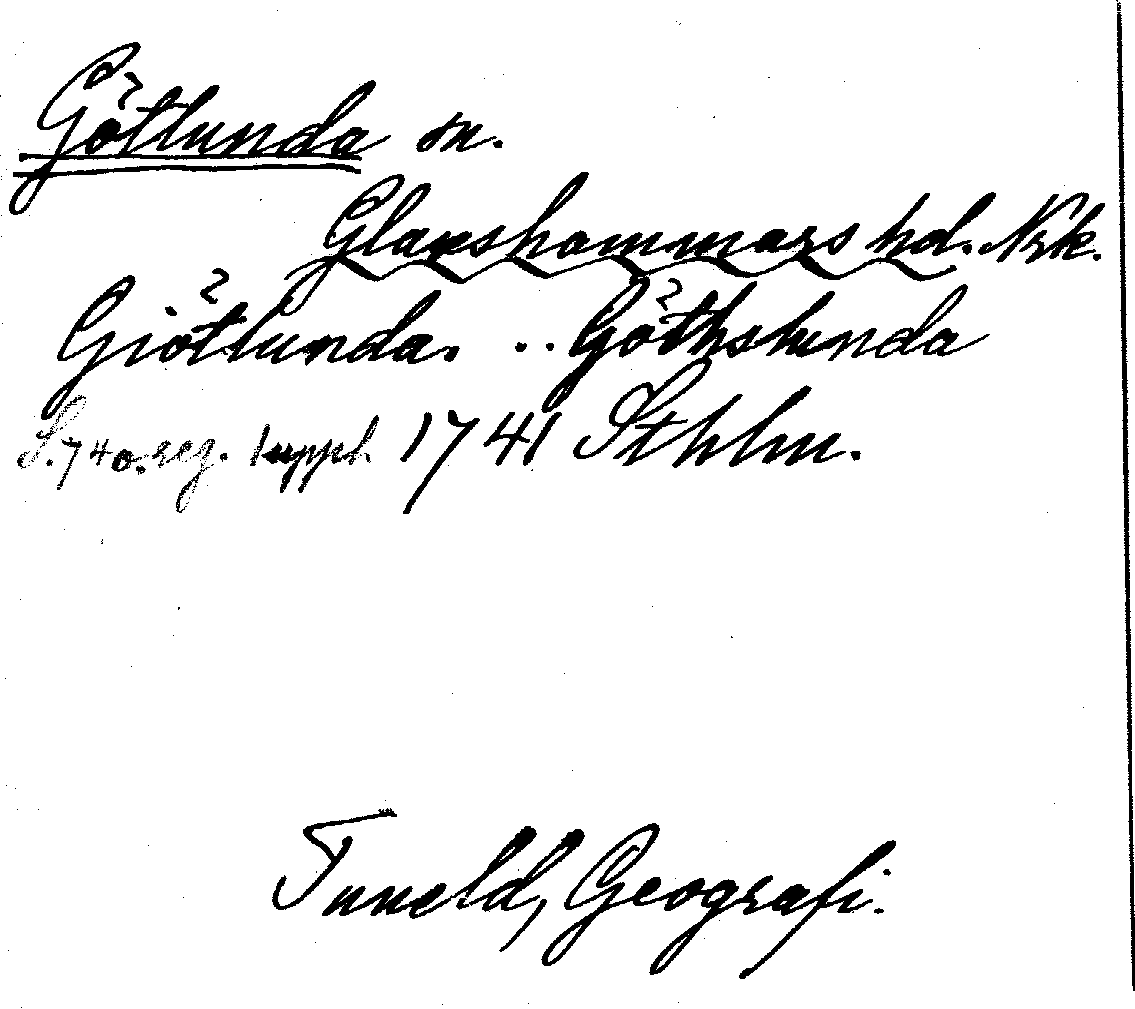 Götlunda sn.
Glanshammars hd. Nrk.
Giötlunda. .. Göthslunda
S. 740. reg. suppl. 1741 Sthlm.
Tuneld, Geografi.